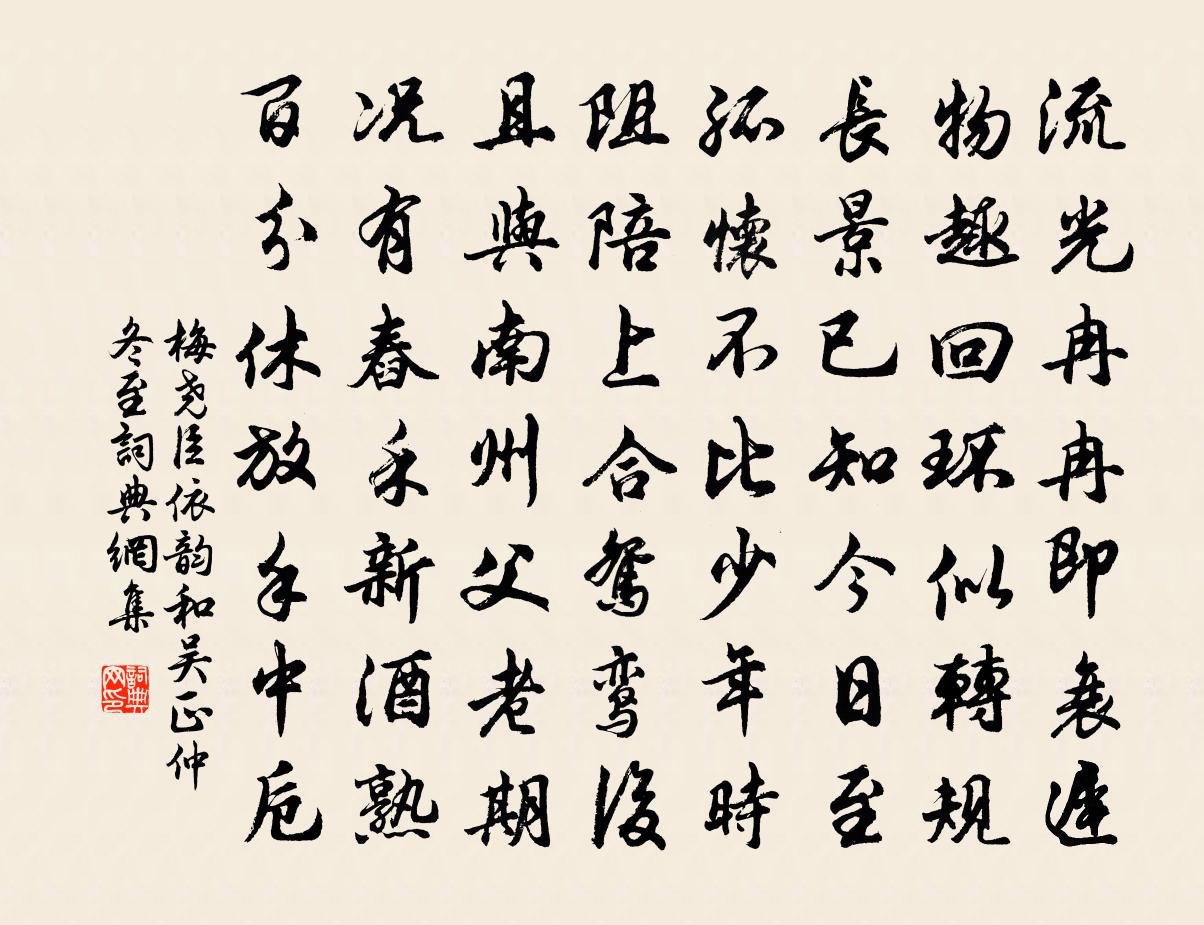 流光冉冉即衰遲
物趣回环似轉規
長景已知今日至
孤懷不比少年時
阻陪上合鴛鸾後
且與南州父老期
况有舂禾新酒熟
百分休放手中卮
梅尧臣依韵和吴正仲
冬至詞典網集
詞典网印